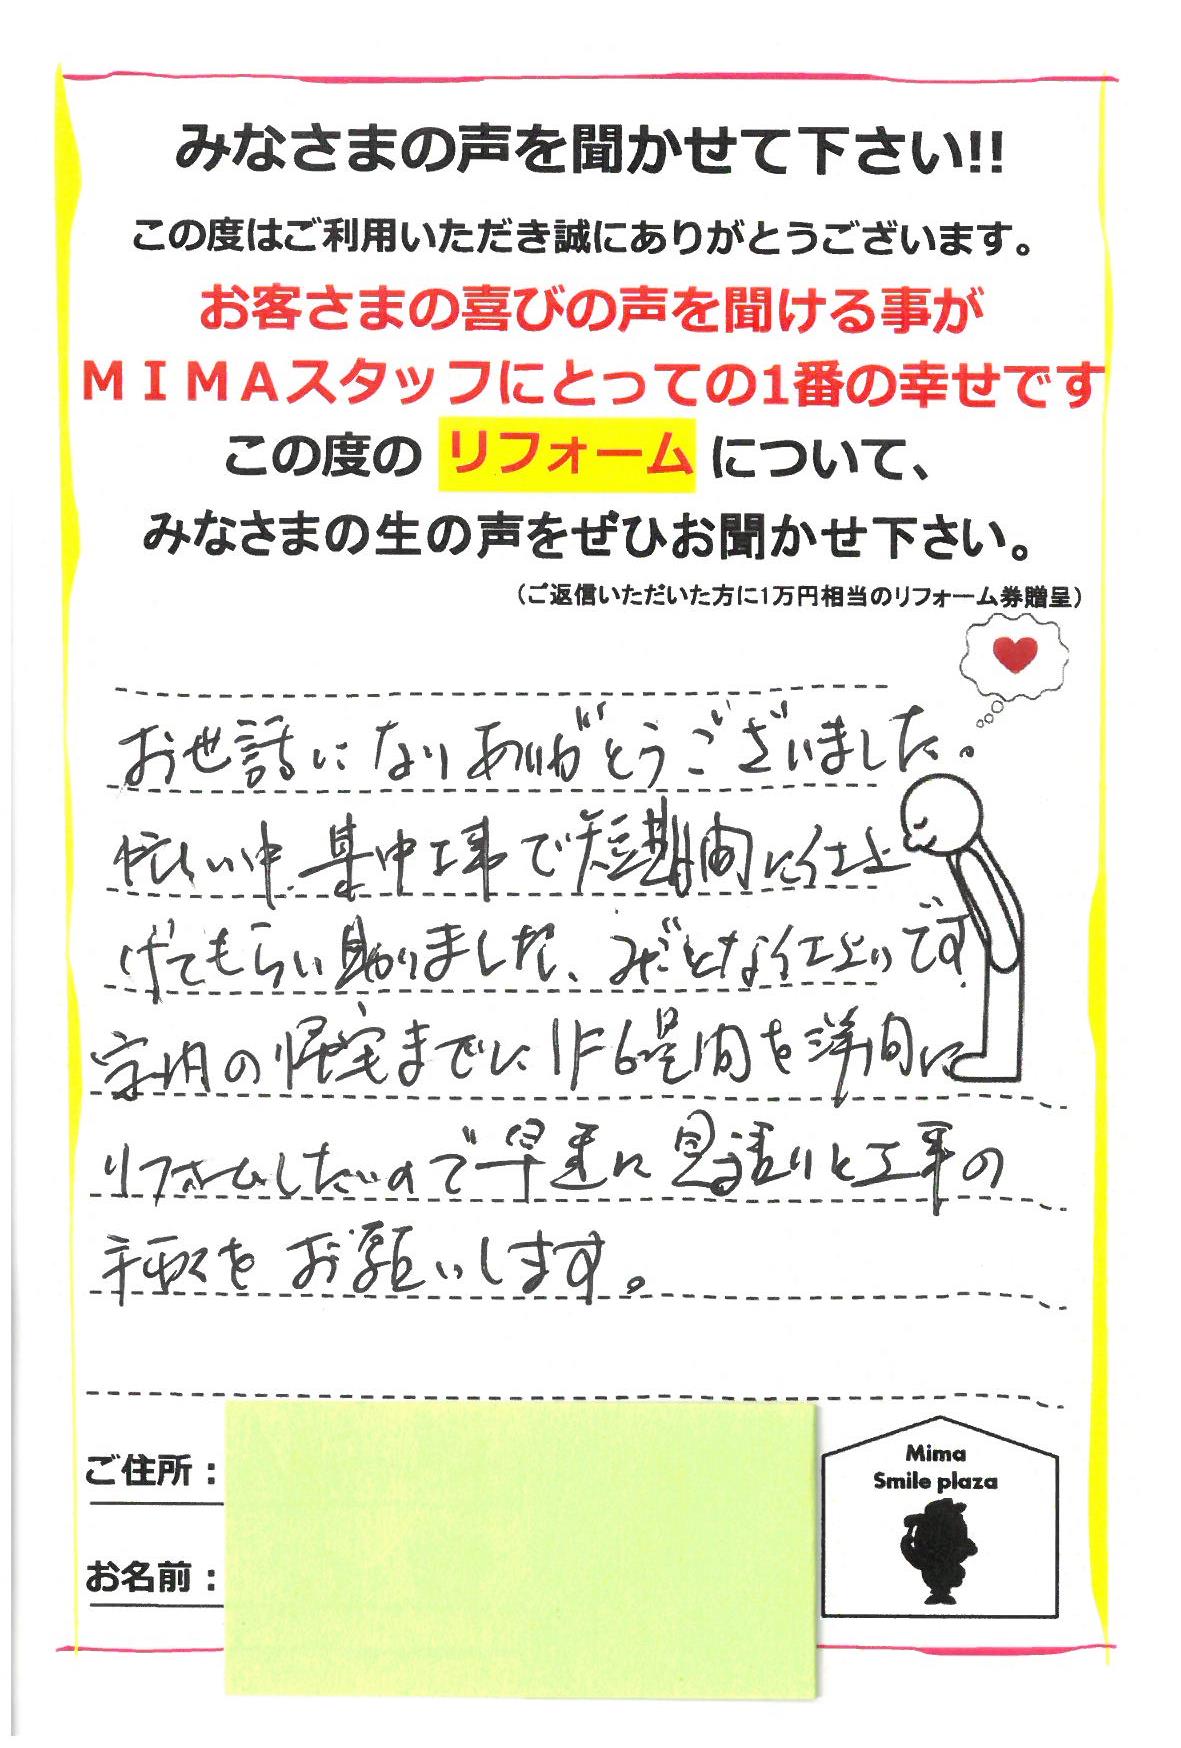 みなさまの声を聞かせて下さい!!
この度はご利用いただき誠にありがとうございます。
お客さまの喜びの声を聞ける事が
MIMAスタッフにとっての1番の幸せです
この度の リフォーム について、
みなさまの生の声をぜひお聞かせ下さい。
(ご返信いただいた方に1万円相当のリフォーム券贈呈)
お世話になりありがとうございました。
忙しい中、集中工事で短期間に仕上
げてもらい助りました、みごとな仕上りです
家内の帰宅までに1F6畳間を洋間に
リフォームしたいので早速に見積りと工事の
手配をお願いします。
ご住所：
お名前：
Mima
Smile plaza